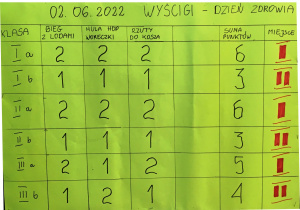 02.06.2022 WYŚCIGI - DZIEŃ ZDROWIA
KLASA BIEG Z LODAMI HULA HOP WORECZKI RZUTY DO KOSZA SUMA PUNKTÓW MIEJSCE
I a 2 2 2 6 I
I b 1 1 1 3 II
II a 2 2 2 6 I
II b 1 1 1 3 II
III a 2 1 2 5 I
III b 1 2 1 4 II